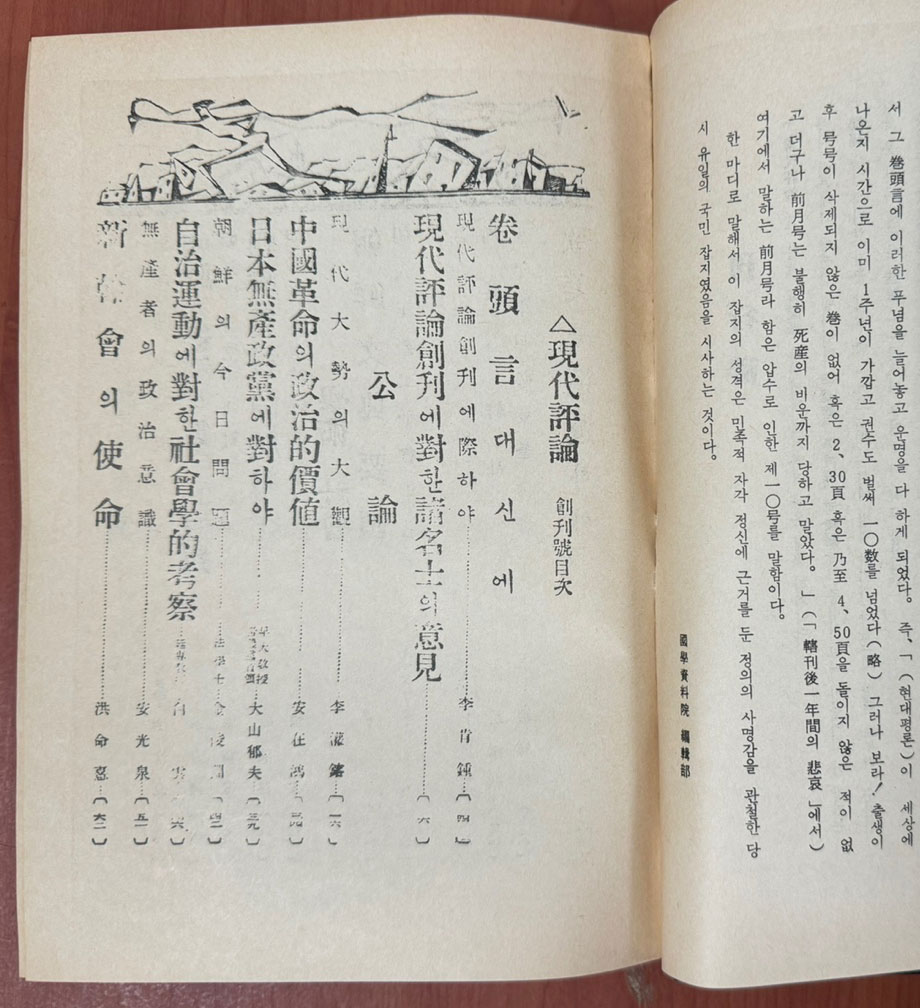 서 그 巻頭言에 이러한 푸념을 늘어놓고 운명을 다 하게 되었다. 즉, 「(현대평론)이 세상에
나온지 시간으로 이미 1주년이 가깝고 권수도 벌써 一〇数를 넘었다(略) 그러나 보라! 출생이
후 号号이 삭제되지 않은 巻이 없어 혹은 2、30頁 혹은 乃至 4、50頁을 돌이지 않은 적이 없
고 더구나 前月号는 불행히 死産의 비운까지 당하고 말았다。」(「轄刊後一年間의 悲哀」에서)
여기에서 말하는 前月号라 함은 압수로 인한 제一〇号를 말함이다。
한 마디로 말해서 이 잡지의 성격은 민족적 자각 정신에 근거를 둔 정의의 사명감을 관철한 당
시 유일의 국민 잡지였음을 시사하는 것이다。
國學資料院 編輯部
△現代評論 創刊號目次
卷頭言대신에
現代評論創刊에際하야……李肯鍾…〔四〕
現代評論創刊에對한諸名士의意見……〔六〕
公論
現代大勢의大觀……李灌鎔…〔一六〕
中國革命의政治的價値……安在鴻…
日本無產政黨에對하야……早大敎授 大山郁夫…〔三九〕
朝鮮의今日問題……法學士…〔四二〕
自治運動에對한社會學的考察……
無產者의政治意識……安光泉…〔五一〕
新幹會의使命……洪命憙…〔六二〕